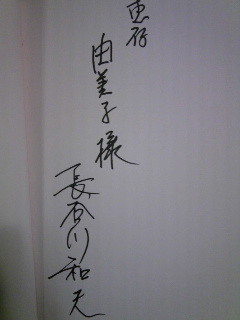 恵存
由美子様
長谷川和夫